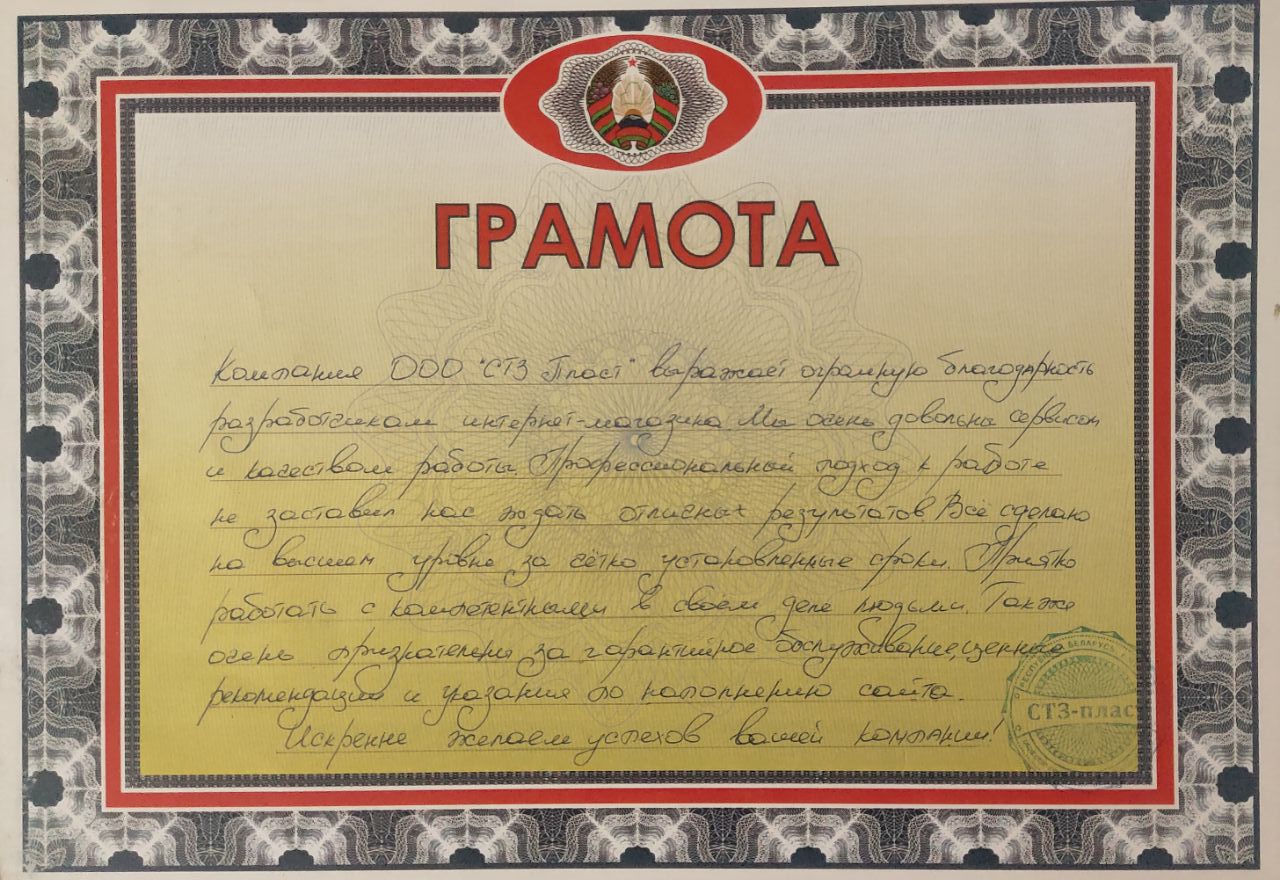 ГРАМОТА
Компания ООО "СТЗ Пласт" выражает огромную благодарность
разработчикам интернет-магазина. Мы очень довольны сервисом
и качеством работы. Профессиональный подход к работе
не заставил нас ждать отличных результатов. Всё сделано
на высшем уровне за чётко установленные сроки. Приятно
работать с компетентными в своём деле людьми. Также
очень признательны за гарантийное обслуживание, ценные
рекомендации и указания по наполнению сайта.
Искренне желаем успехов вашей компании!
РЕСПУБЛИКА БЕЛАРУСЬ
СТЗ-плас